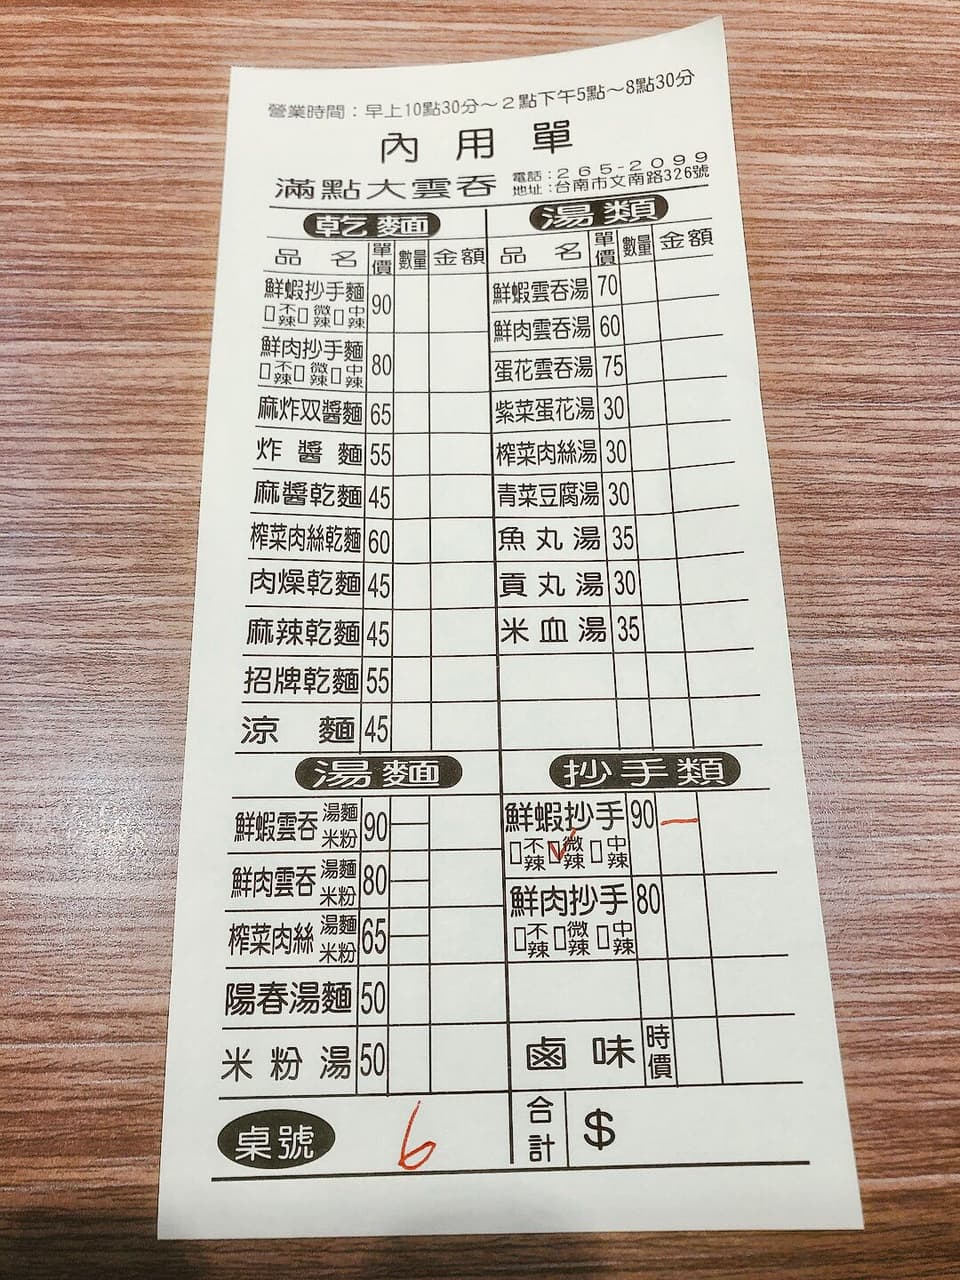 營業時間：早上10點30分～2點下午5點～8點30分
內用單
滿點大雲吞
電話：265-2099
地址：台南市文南路326號
乾麵
品名 單價 數量 金額
鮮蝦抄手麵 90
不辣 微辣 中辣
鮮肉抄手麵 80
不辣 微辣 中辣
麻炸双醬麵 65
炸醬麵 55
麻醬乾麵 45
榨菜肉絲乾麵 60
肉燥乾麵 45
麻辣乾麵 45
招牌乾麵 55
涼麵 45
湯類
品名 單價 數量 金額
鮮蝦雲吞湯 70
鮮肉雲吞湯 60
蛋花雲吞湯 75
紫菜蛋花湯 30
榨菜肉絲湯 30
青菜豆腐湯 30
魚丸湯 35
貢丸湯 30
米血湯 35
湯麵
鮮蝦雲吞 湯麵 米粉 90
鮮肉雲吞 湯麵 米粉 80
榨菜肉絲 湯麵 米粉 65
陽春湯麵 50
米粉湯 50
抄手類
鮮蝦抄手 90 一
不辣 微辣 中辣
鮮肉抄手 80
不辣 微辣 中辣
鹵味 時價
桌號 6
合計 $